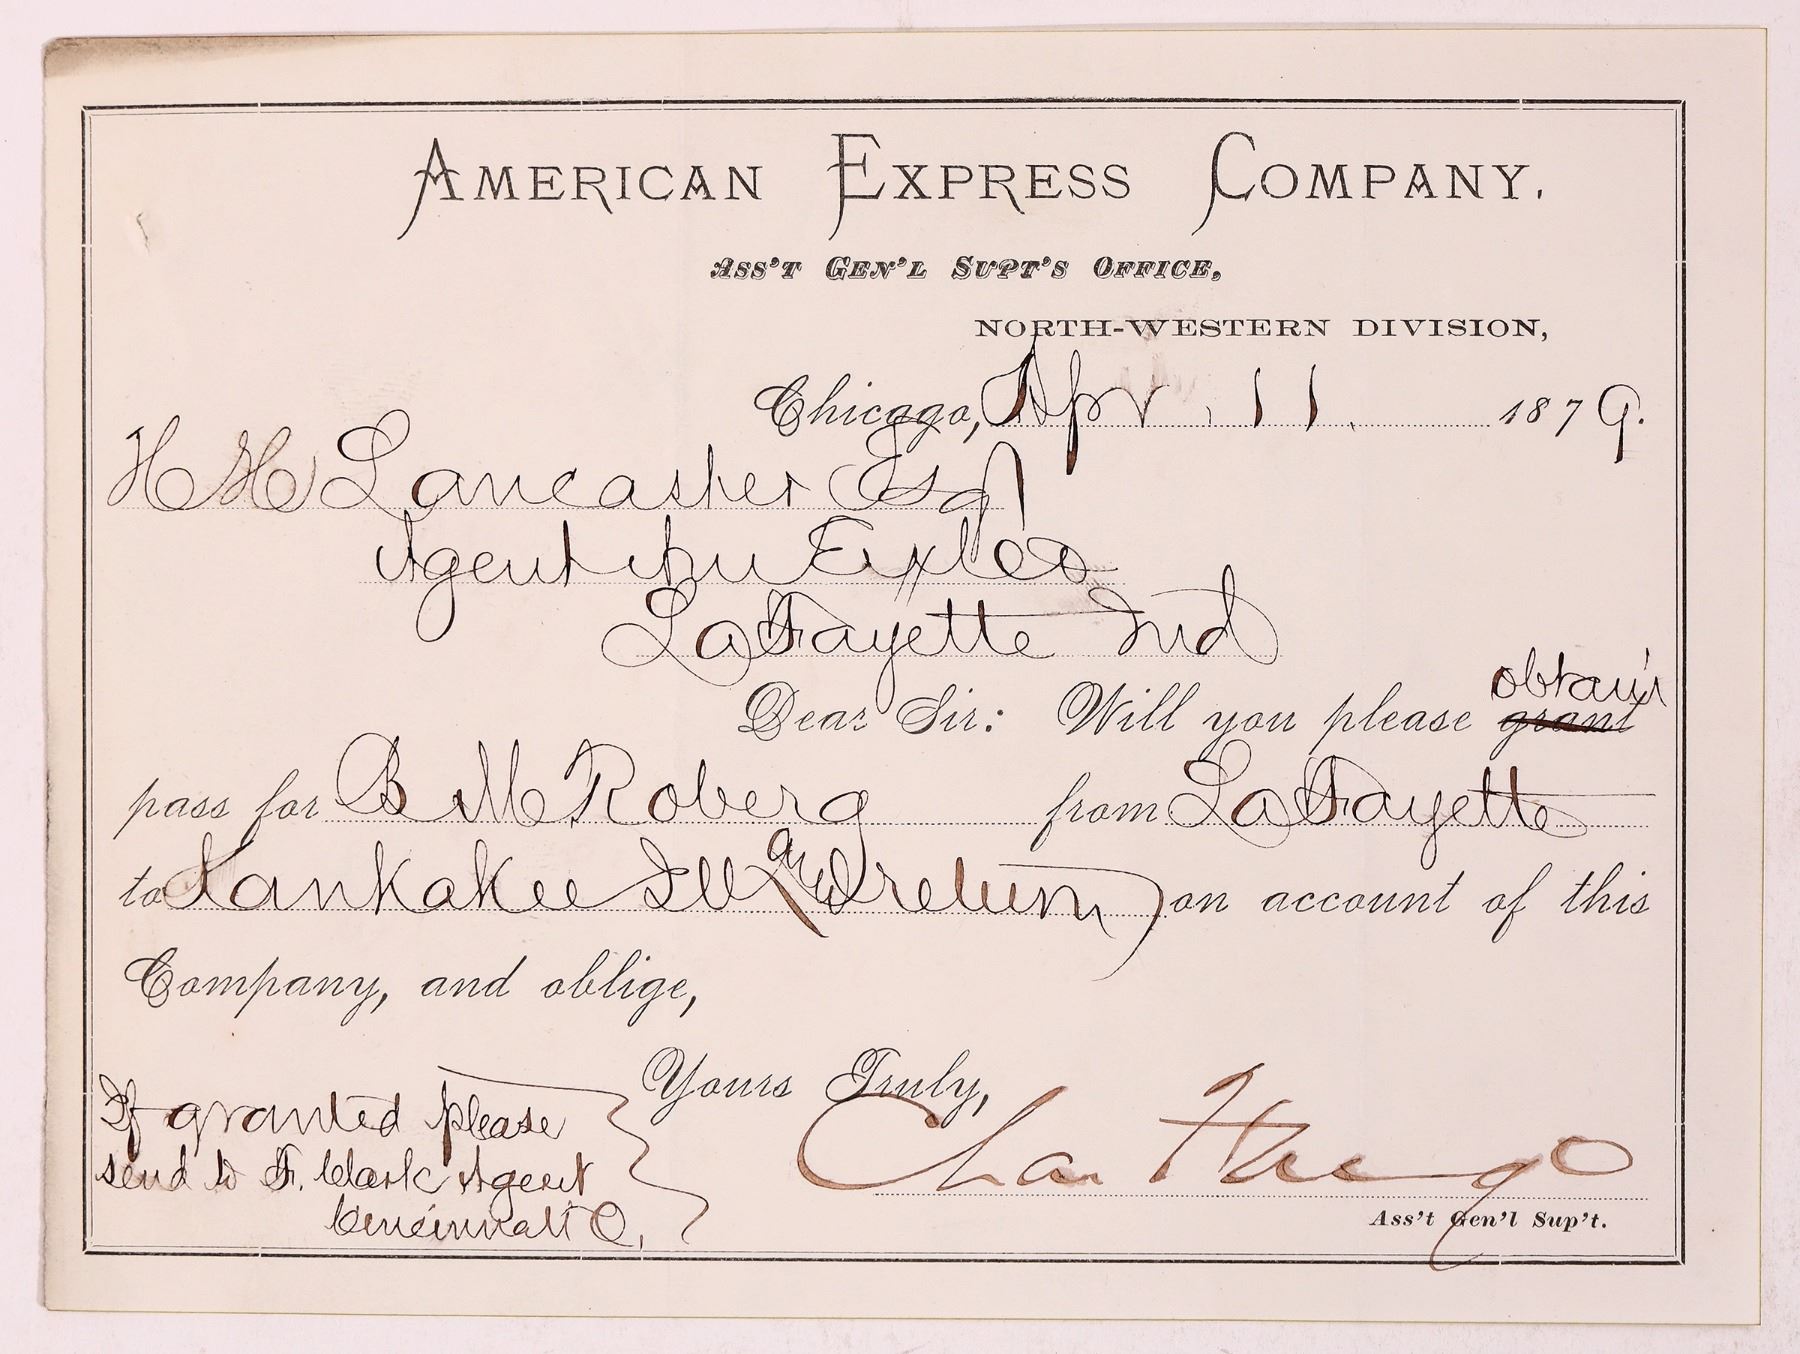 AMERICAN EXPRESS COMPANY.
ASS'T GEN'L SUPT'S OFFICE,
NORTH-WESTERN DIVISION,
Chicago, Apr. 11. 1879.
H M Lancaster Esq
Agent Am Ex Co
LaFayette Ind
obtain
Dear Sir: Will you please grant
pass for B M Roberg from LaFayette
to Kankakee Ill and return on account of this
Company, and oblige,
Yours Truly,
If granted please
send to F. Clark Agent
Cincinnati O.
Chas Fargo
Ass't Gen'l Sup't.